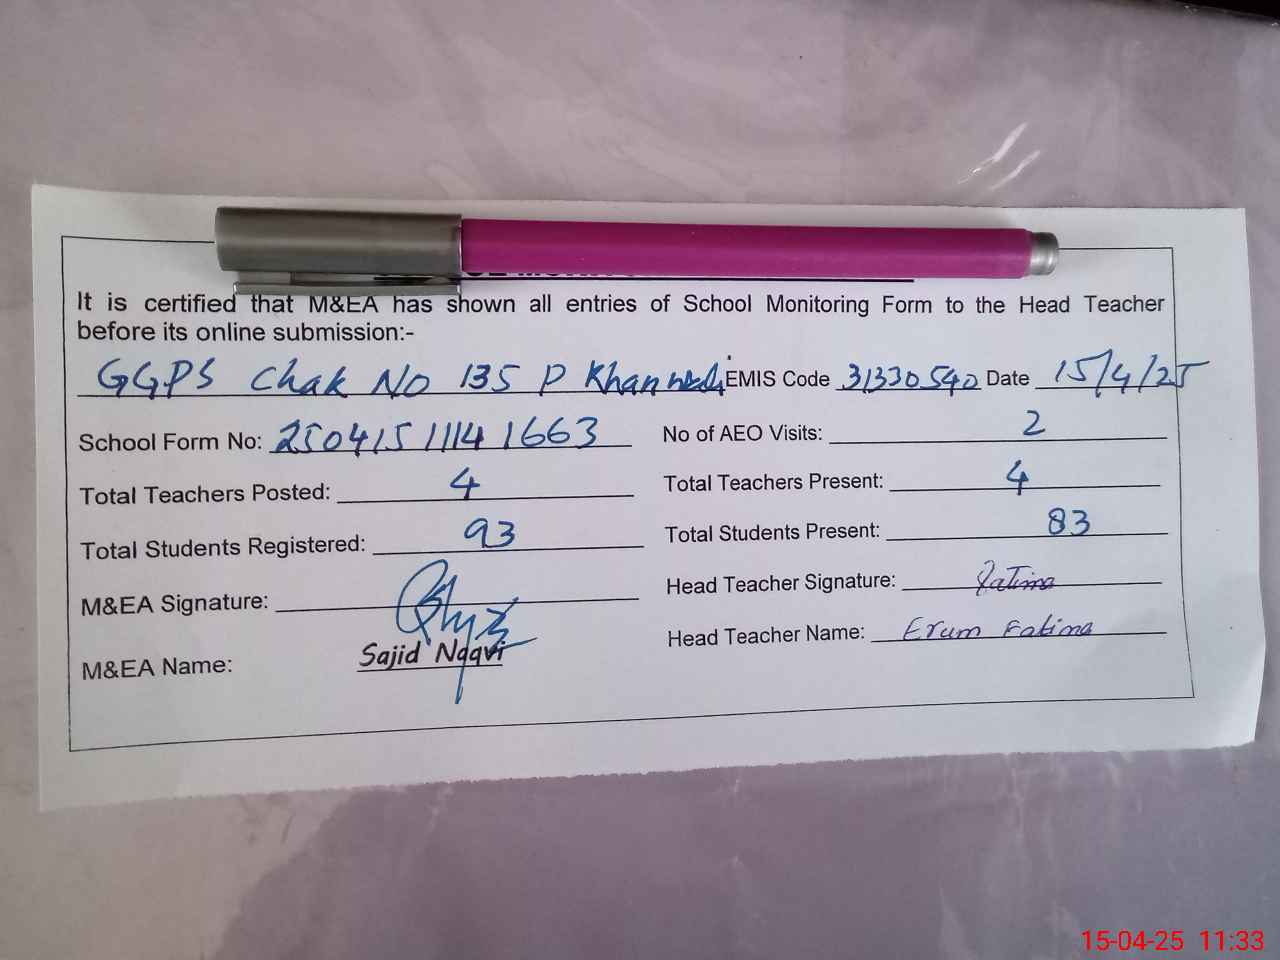 It is certified that M&EA has shown all entries of School Monitoring Form to the Head Teacher
before its online submission:-
GGPS Chak No 135 P Khan EMIS Code 31330540 Date 15/4/25
School Form No: 25041511141663 No of AEO Visits: 2
Total Teachers Posted: 4 Total Teachers Present: 4
Total Students Registered: 93 Total Students Present: 83
M&EA Signature: Head Teacher Signature: Fatima
M&EA Name: Sajid Naqvi Head Teacher Name: Erum Fatima
15-04-25 11:33